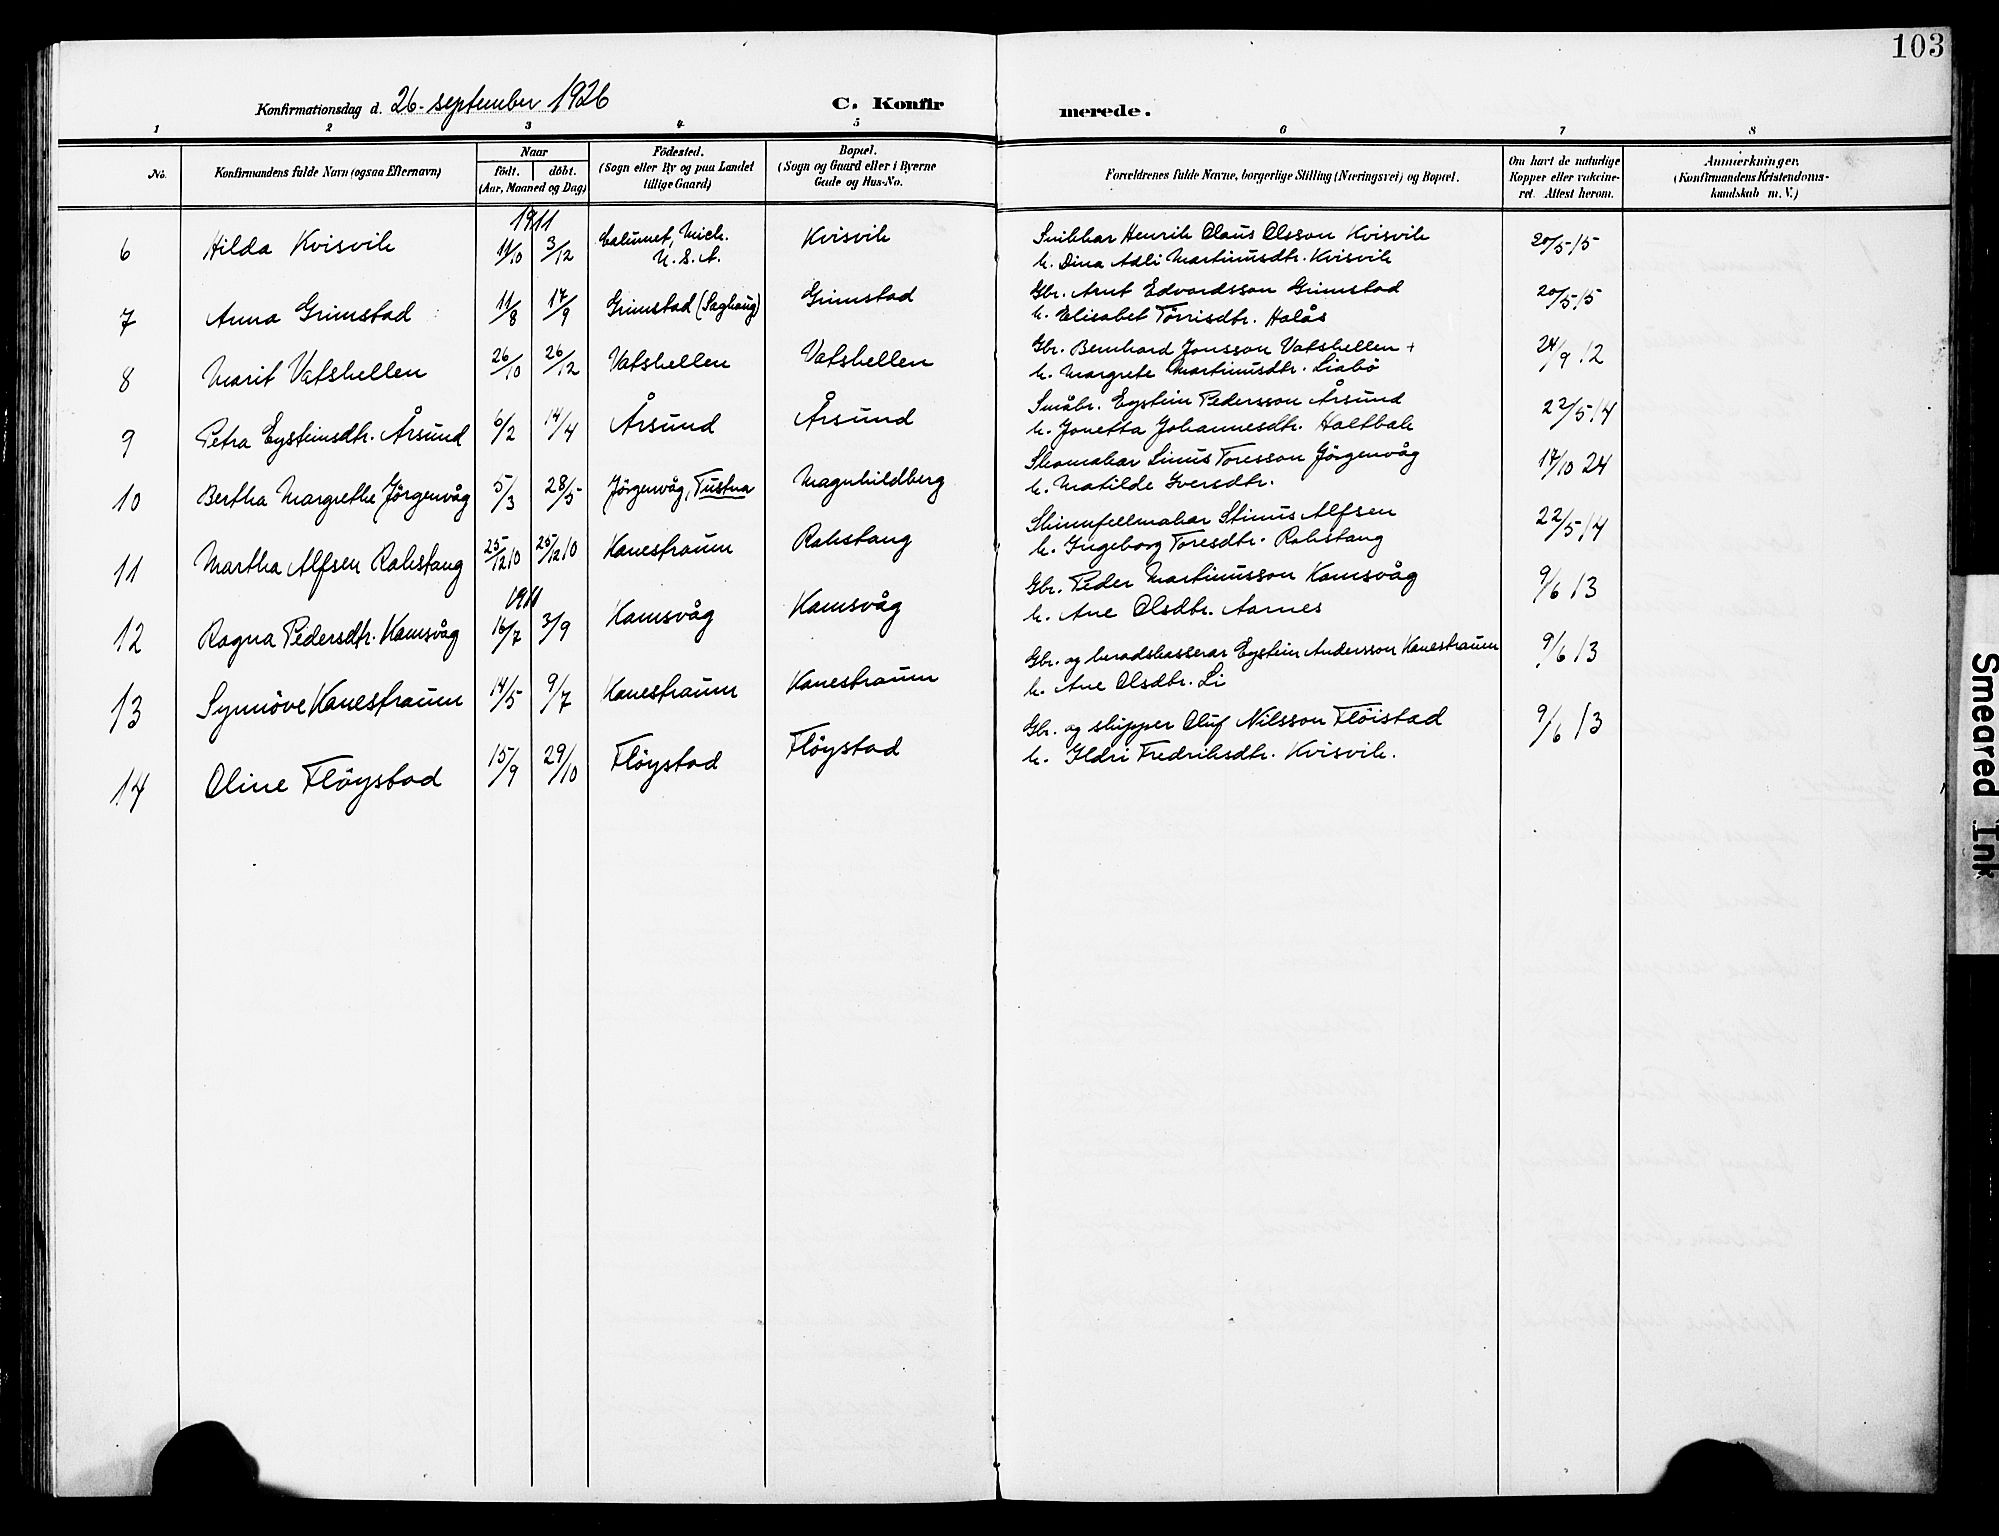 103
Konfirmationsdag d. 26. september 1926 C. Konfir merede.
1 2 3 4 5 6 7 8
No. Konfirmandens fulde Navn (ogsaa Efternavn) Naar Födested. Bopæl. Forældrenes fulde Navne, borgerlige Stilling (Næringsvei) og Bopæl. Om havt de naturlige Anmærkninger.
födt. döbt. (Sogn eller By og paa Landet (Sogn og Gaard eller i Byerne Kopper eller vakcine- (Konfirmandens Kristendoms-
(Aar, Maaned og Dag) tillige Gaard) Gade og Hus-No. ret. Attest herom. kundskab m. V.)
1911
6 Hilda Kvisvik 11/10 3/12 Calumet, Mich. Kvisvik Snikkar Henrik Claus Olsson Kvisvik 20/5 15
U. S. A. k. Dina Adli Martinusdtr. Kvisvik
7 Anna Grimstad 11/8 17/9 Grimstad (Saghaug) Grimstad Gbr. Arnt Edvardsson Grimstad 20/5 15
k. Elisabet Torrisdtr. Halås
8 Marit Vatshellen 26/10 26/12 Vatshellen Vatshellen Gbr. Bernhard Jonsson Vatshellen + 24/9 12
k. Margrete Martinusdtr. Liabö
9 Petra Eysteinsdtr. Årsund 6/2 14/4 Årsund Årsund Småbr. Eystein Pedersson Årsund 22/5 14
k. Jonetta Johannesdtr. Holtbak
10 Bertha Margrethe Jörgenvåg 5/3 28/5 Jörgenvåg, Tustna Magnhildberg Skomakar Linus Toresson Jörgenvåg 17/10 24
k. Matilde Iversdtr.
11 Martha Alfsen Rokstang 25/12 10 25/12 10 Kanestraum Rokstang Skinnfellmakar Stinus Alfsen 22/5 14
k. Ingeborg Toresdtr. Rokstang
1911
12 Ragna Pedersdtr. Kamsvåg 16/7 3/9 Kamsvåg Kamsvåg Gbr. Peder Martinusson Kamsvåg 9/6 13
k. Ane Olsdtr. Aarnes
13 Synnöve Kanestraum 14/5 9/7 Kanestraum Kanestraum Gbr. og heradskasserar Eystein Andersson Kanestraum 9/6 13
k. Ane Olsdtr. Li
14 Oline Flöystad 15/9 29/10 Flöystad Flöystad Gbr. og skipper Oluf Nilsson Flöistad 9/6 13
k. Ildri Fredriksdtr. Kvisvik.
Smeared Ink